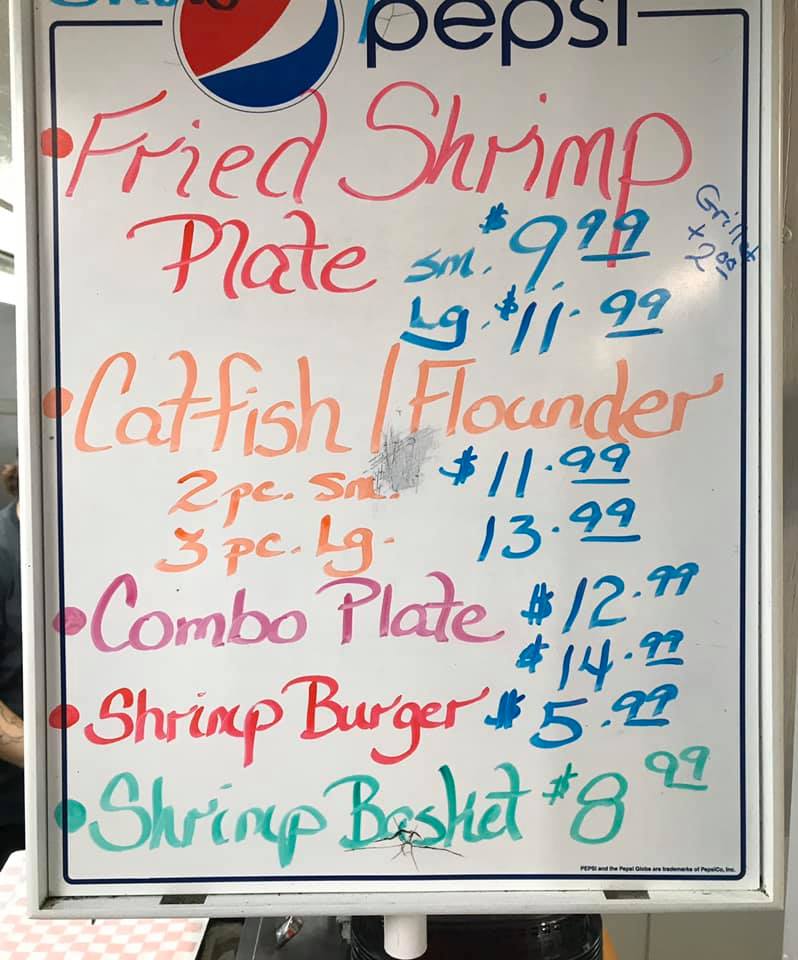 pepsi
• Fried Shrimp
Plate sm. $9.99
Lg. $11.99
Grilled
+2.00
• Catfish / Flounder
2 pc. sm. $11.99
3 pc. Lg. 13.99
• Combo Plate $12.99
$14.99
• Shrimp Burger $5.99
• Shrimp Basket $8 99
PEPSI and the Pepsi Globe are trademarks of PepsiCo, Inc.